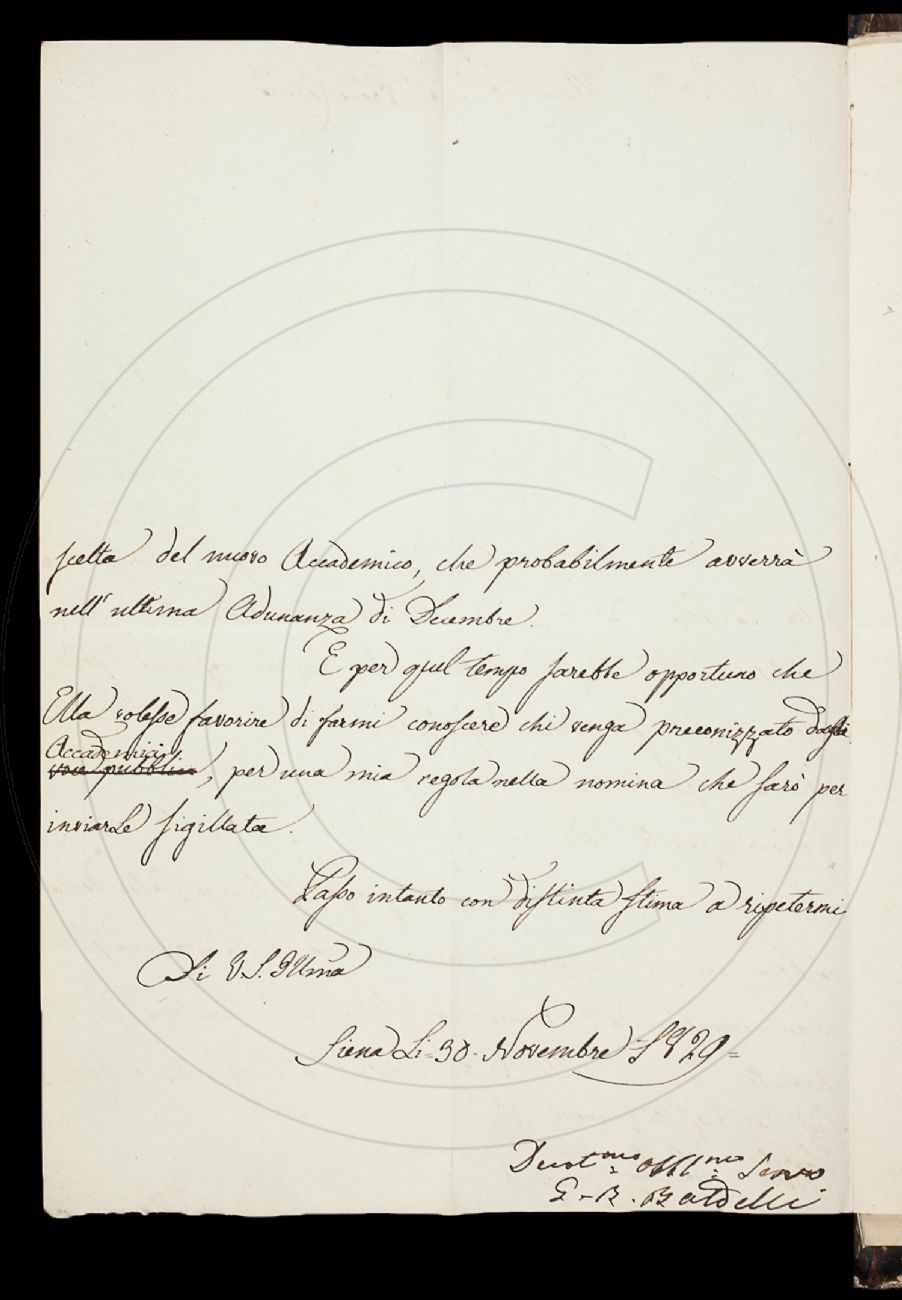 scelta del nuovo Accademico, che probabilmente avverrà
nell'ultima Adunanza di Decembre.
E per quel tempo sarebbe opportuno che
Ella volesse favorire di farmi conoscere chi venga preconizzato dagli
Accademici
voce pubblica, per una mia regola nella nomina che farò per
inviarLe sigillata.
Passo intanto con distinta stima a ripetermi
Di V.S. Illma
Siena Li = 30 = Novembre = 1829 =
Devotmo obblmo Servo
G. B. Baldelli